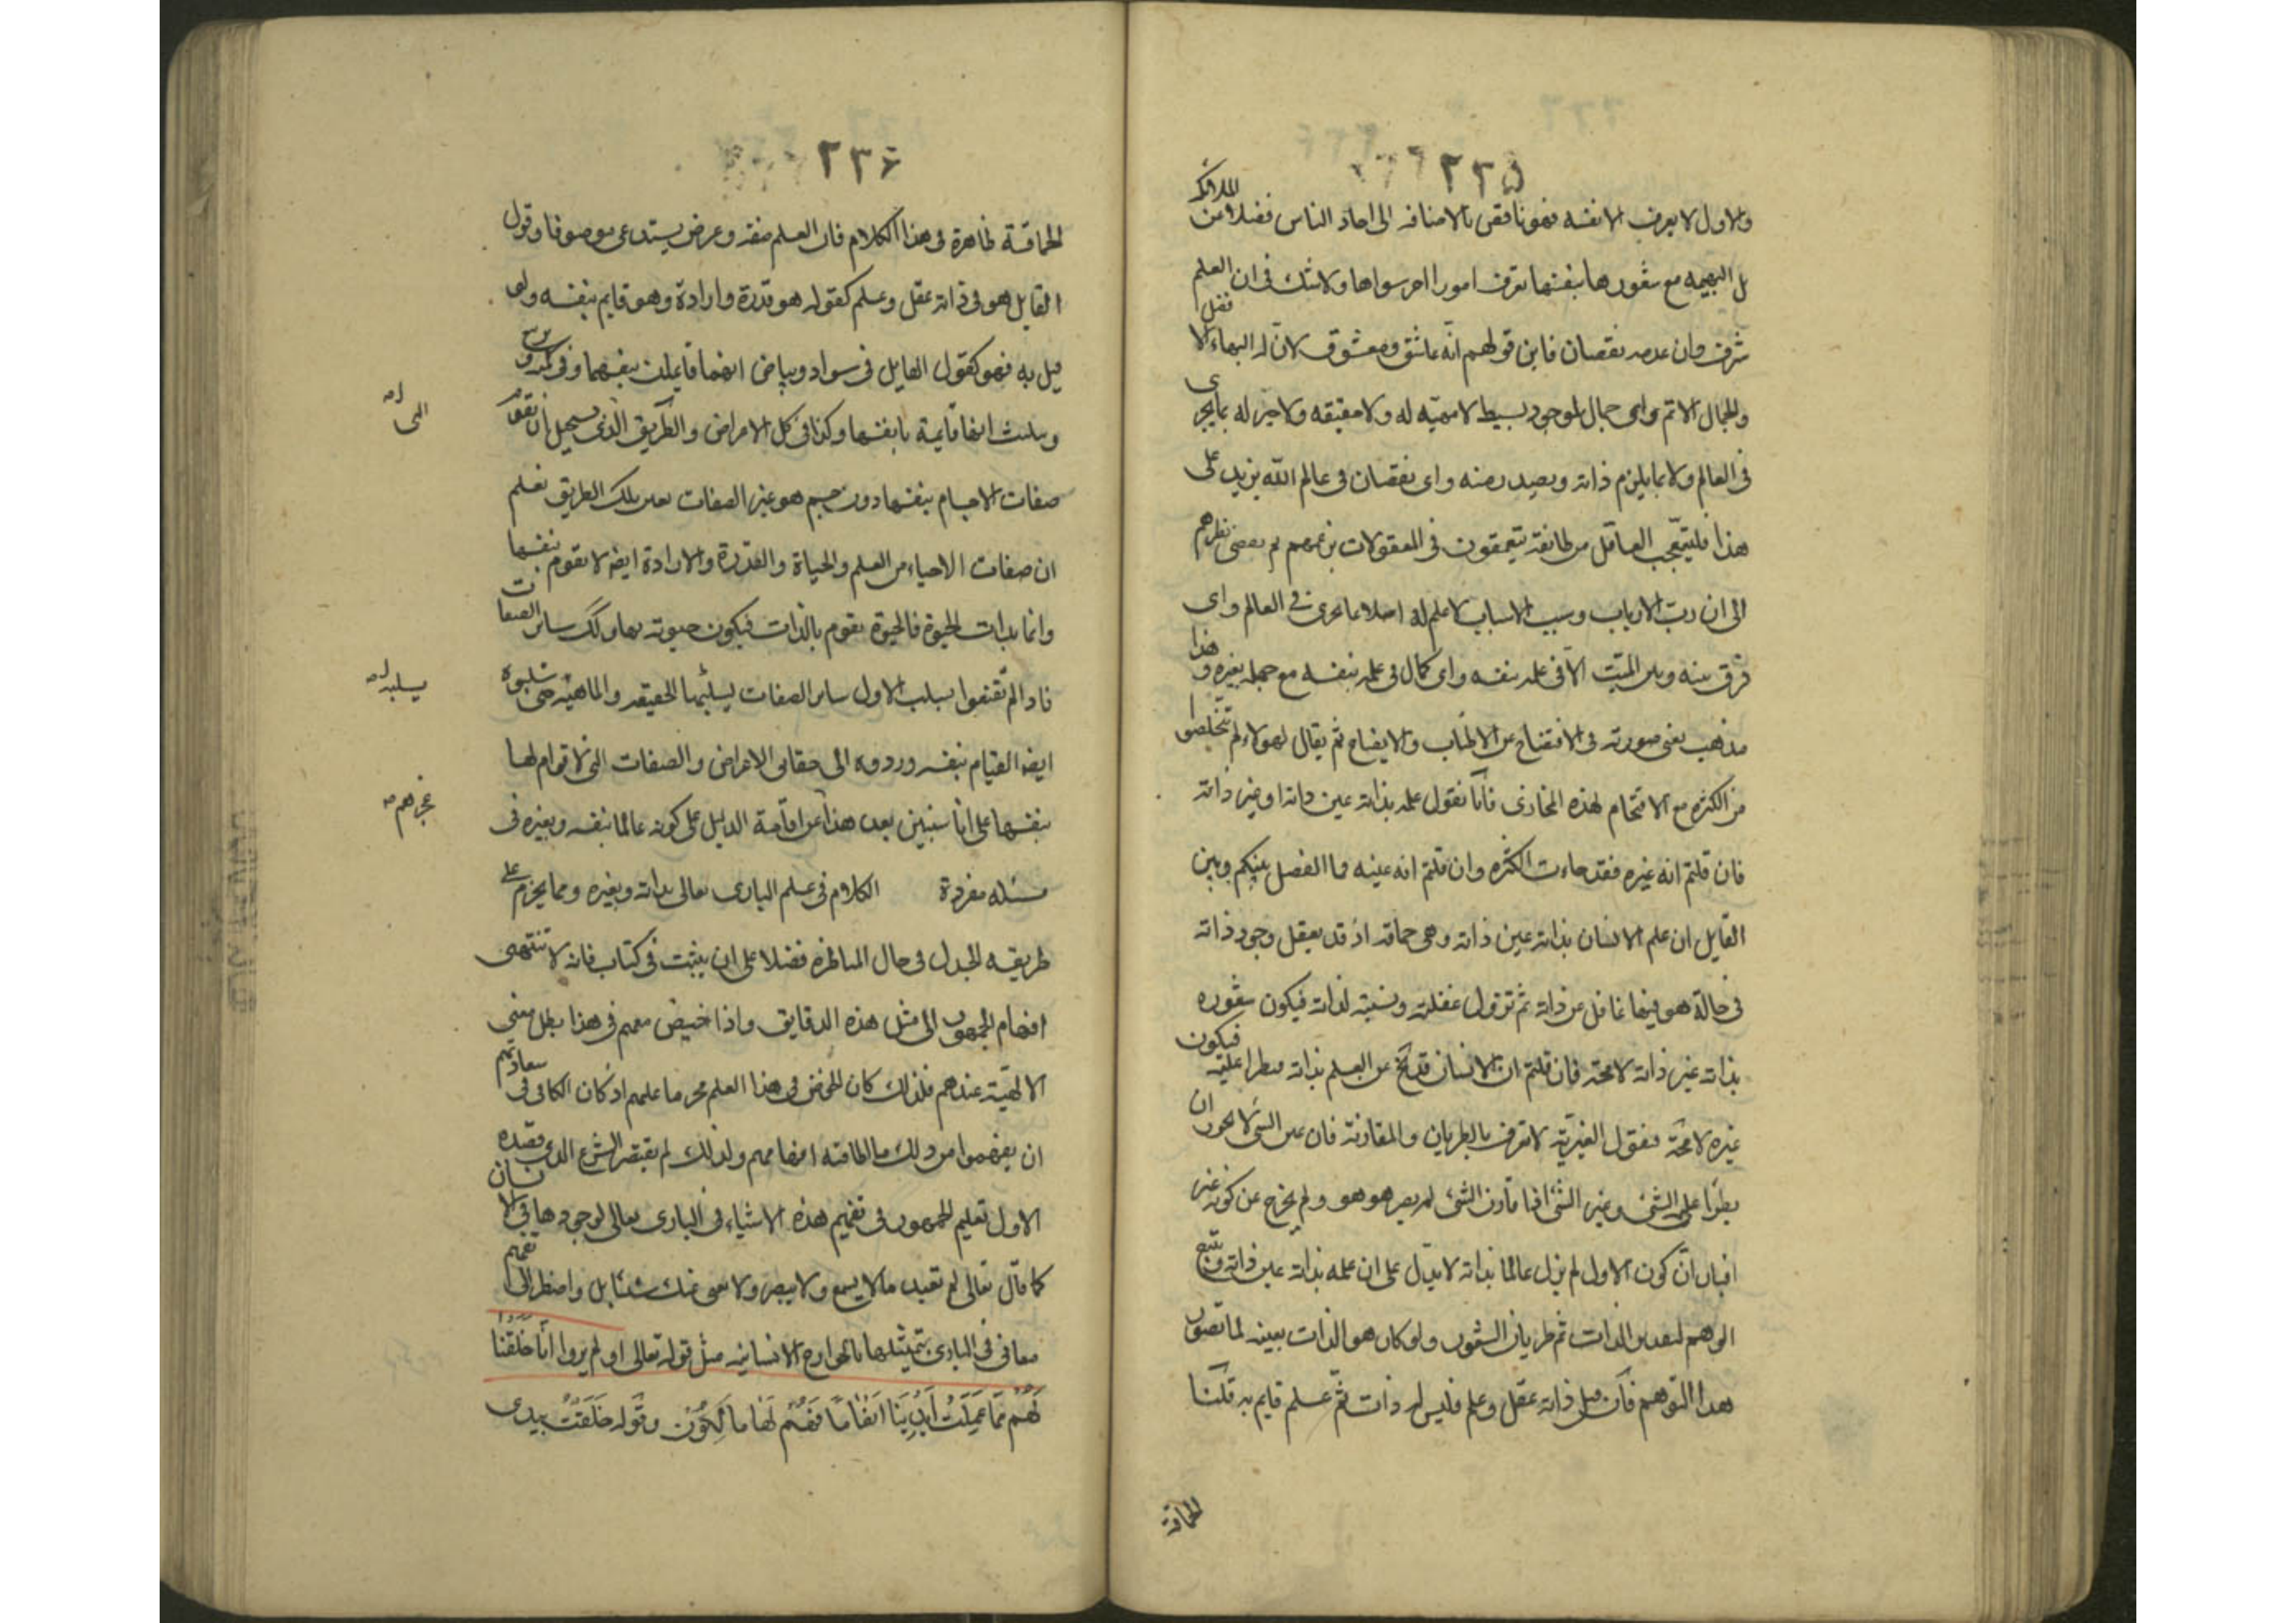 ٢٣٥
والاول لا يعرف الا نفسه فهو ناقص بالاضافه الى احاد الناس فضلا من الملائكه
بل البهيمه مع شعورها بنفسها تعرف امورا اخر سواها ولا شك فى ان العلم
شرف وان عدمه نقصان فاين قولهم انه عاشق ومعشوق لان له البهاء الا
والجمال الاتم واى جمال لموجود بسيط لا مهيه له ولا حقيقه ولا خبر له بما يجرى
فى العالم ولا بما يلزم ذاته ويصدر منه واى نقصان فى عالم الله يزيد على
هذا فليتعجب العاقل من طائفة يتعمقون فى المعقولات بزعمهم ثم يفضى نظرهم
الى ان رب الارباب وسبب الاسباب لا علم له اصلا بما يجرى فى العالم واى
فرق بينه وبين الميت الا فى علمه بنفسه واى كمال فى علمه بنفسه مع جهله بغيره وهذا
مذهب يغنى صورته فى الافتضاح عن الاطناب والايضاح ثم يقال لهولاء لم تتخلصوا
من الكثره مع الاقتحام لهذه المخازى فانا نقول علمه بذاته عين ذاته او غير ذاته
فان قلتم انه غيره فقد جاءت الكثره وان قلتم انه عينه فما الفصل بينكم وبين
القايل ان علم الانسان بذاته عين ذاته وهى حماقه اذ قد يعقل وجود ذاته
فى حالة هو فيها غافل عن ذاته ثم تزول غفلته وينتبه لذاته فيكون شعوره
بذاته غير ذاته لا محته فان قلتم ان الانسان قد يخ عن العلم بذاته فيطرا عليه فيكون
غيره لا محة فنقول الغيرية لا تعرف بالطريان والمقارنة فان عين الشى لا يجوز ان
يطرا على الشئ وغير الشئ اذا قارن الشئ لم يصر هو هو ولم يخرج عن كونه غير
افبان ان كون الاول لم يزل عالما بذاته لا يدل على ان علمه بذاته عين ذاته ويتسع
الوهم لتقدير الذات ثم طريان الشعور ولو كان هو الذات بعينه لما تصور
هذا التوهم فان قيل ذاته عقل وعلم فليس له ذات ثم علم قايم به قلنا
الحماقة
٢٣٦
الحماقة ظاهرة فى هذا الكلام فان العلم صفة وعرض يستدعى موصوفا وقول
القايل هو فى ذاته عقل وعلم كقوله هو قدرة وارادة وهو قايم بنفسه ولو
قيل به فهو كقول القايل فى سواد وبياض انهما قايمان بنفسهما وفى
وتثليث انها قايمة بانفسها وكذا فى كل الاعراض والطريق الذى يستحيل ان تقوم
صفات الاجسام بنفسها دون جسم هو غير الصفات بعين تلك الطريق تعلم
ان صفات الاحياء من العلم والحياة والقدرة والارادة ايضا لا تقوم بنفسها
وانما بذات الحيوة فالحيوة تقوم بالذات فيكون حيوته بها وكك ساير الصفات
فاذا لم تقنعوا بسلب الاول ساير الصفات يسلبهما الحقيقه والماهية حتى سلبوه
ايضا القيام بنفسه وردوه الى حقايق الاعراض والصفات التى لا قوام لها
بنفسها على انا سنبين بعد هذا عن اقامة الدليل على كونه عالما بنفسه وبغيره فى
مسئله مفردة الكلام فى علم البارى تعالى بذاته وبغيره ومما يحرم على
طريقه الجدل فى حال المناظره فضلا على ان يثبت فى كتاب فانه لا تنتهى
افهام الجمهور الى مثل هذه الدقايق واذا خيض معهم فى هذا بطل معنى
الالهية عندهم فلذلك كان الخوض فى هذا العلم محرما علمهم اذ كان الكافى فى سعادتهم
ان يفهموا من ذلك ما اطاقته افهامهم ولذلك لم يقتصر الشرع الذى قصده
الاول تعليم الجمهور فى تفهيم هذه الاشياء فى البارى تعالى لوجودها فى الانسان
كما قال تعالى لم تعبد ما لا يسمع ولا يبصر ولا يغنى عنك شيئا بل واضطر الى تفهيم
معانى فى البارى بتمثيلها بالجوارح الانسانيه مثل قوله تعالى اولم يروا انا خلقنا
لهم مما عملت ايدينا انعاما فهم لها مالكون وقوله خلقت بيدى
التى
يسلبه
عجزهم